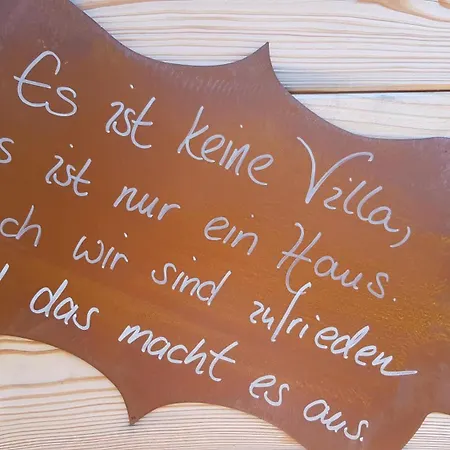 Es ist keine Villa,
s ist nur ein Haus.
ch wir sind zufrieden
d das macht es aus.